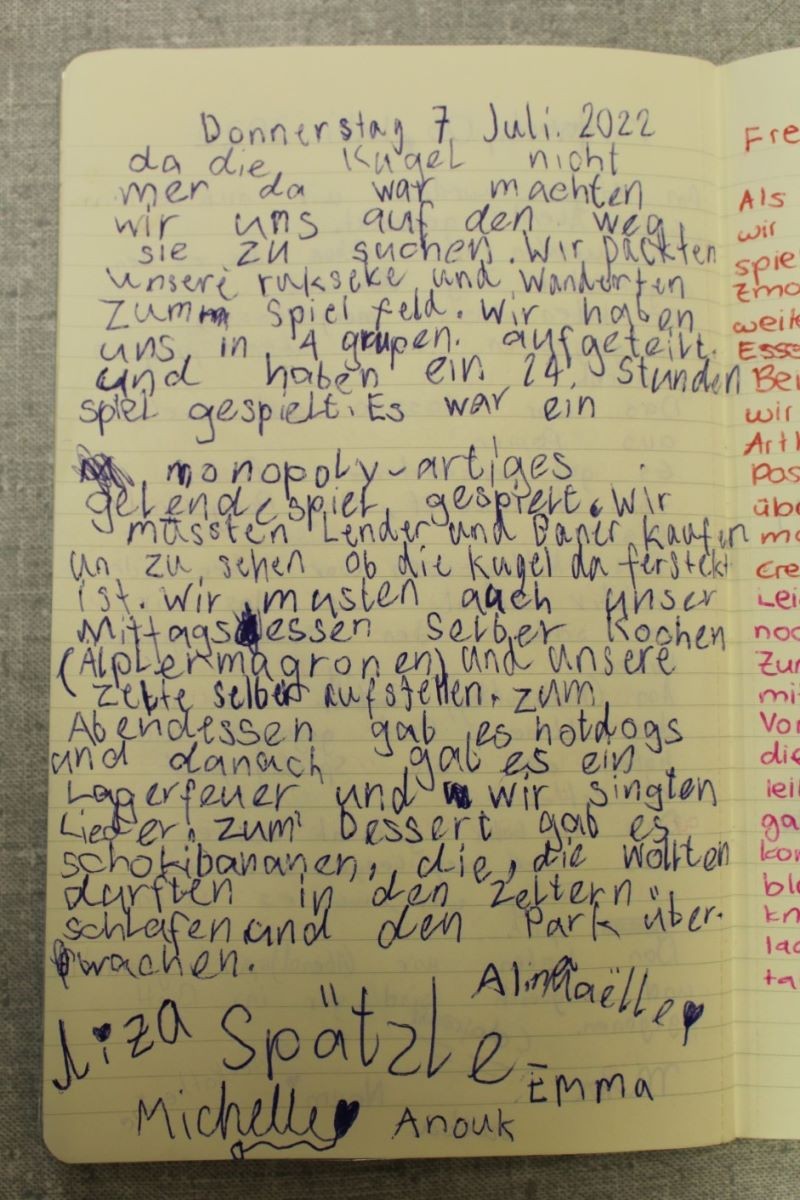 Donnerstag 7 Juli. 2022
da die Kugel nicht
mer da war machten
wir uns auf den weg
sie zu suchen. Wir packten
unsere rukseke und wanderten
zumm Spielfeld. Wir haben
uns in 4 grupen. aufgeteilt.
und haben ein 24. Stunden
spiel gespielt. Es war ein
monopoly-artiges
gelendespiel gespielt. Wir
mussten Lender und Baner kaufen
un zu sehen ob die kugel da ferstekt
ist. Wir musten auch unser
Mittagsessen selber kochen
(Alplermagronen) und unsere
zelte selber aufstellen. zum
Abendessen gab es hotdogs
und danach gab es ein
Lagerfeuer und wir singten
Lieder. zum Dessert gab es
schokibananen, die, die wollten
durften in den Zeltern
schlafen und den Park über-
wachen.
Alina
Maëlle
Liza Spätzle
Emma
Michelle Anouk
Fre
Als
wir
spie
zmo
weit
Esse
Bei
wir
Art
Pos
übe
mo
cre
Lei
noc
Zur
mi
Vor
die
lei
ga
kor
blo
kn
lac
ta